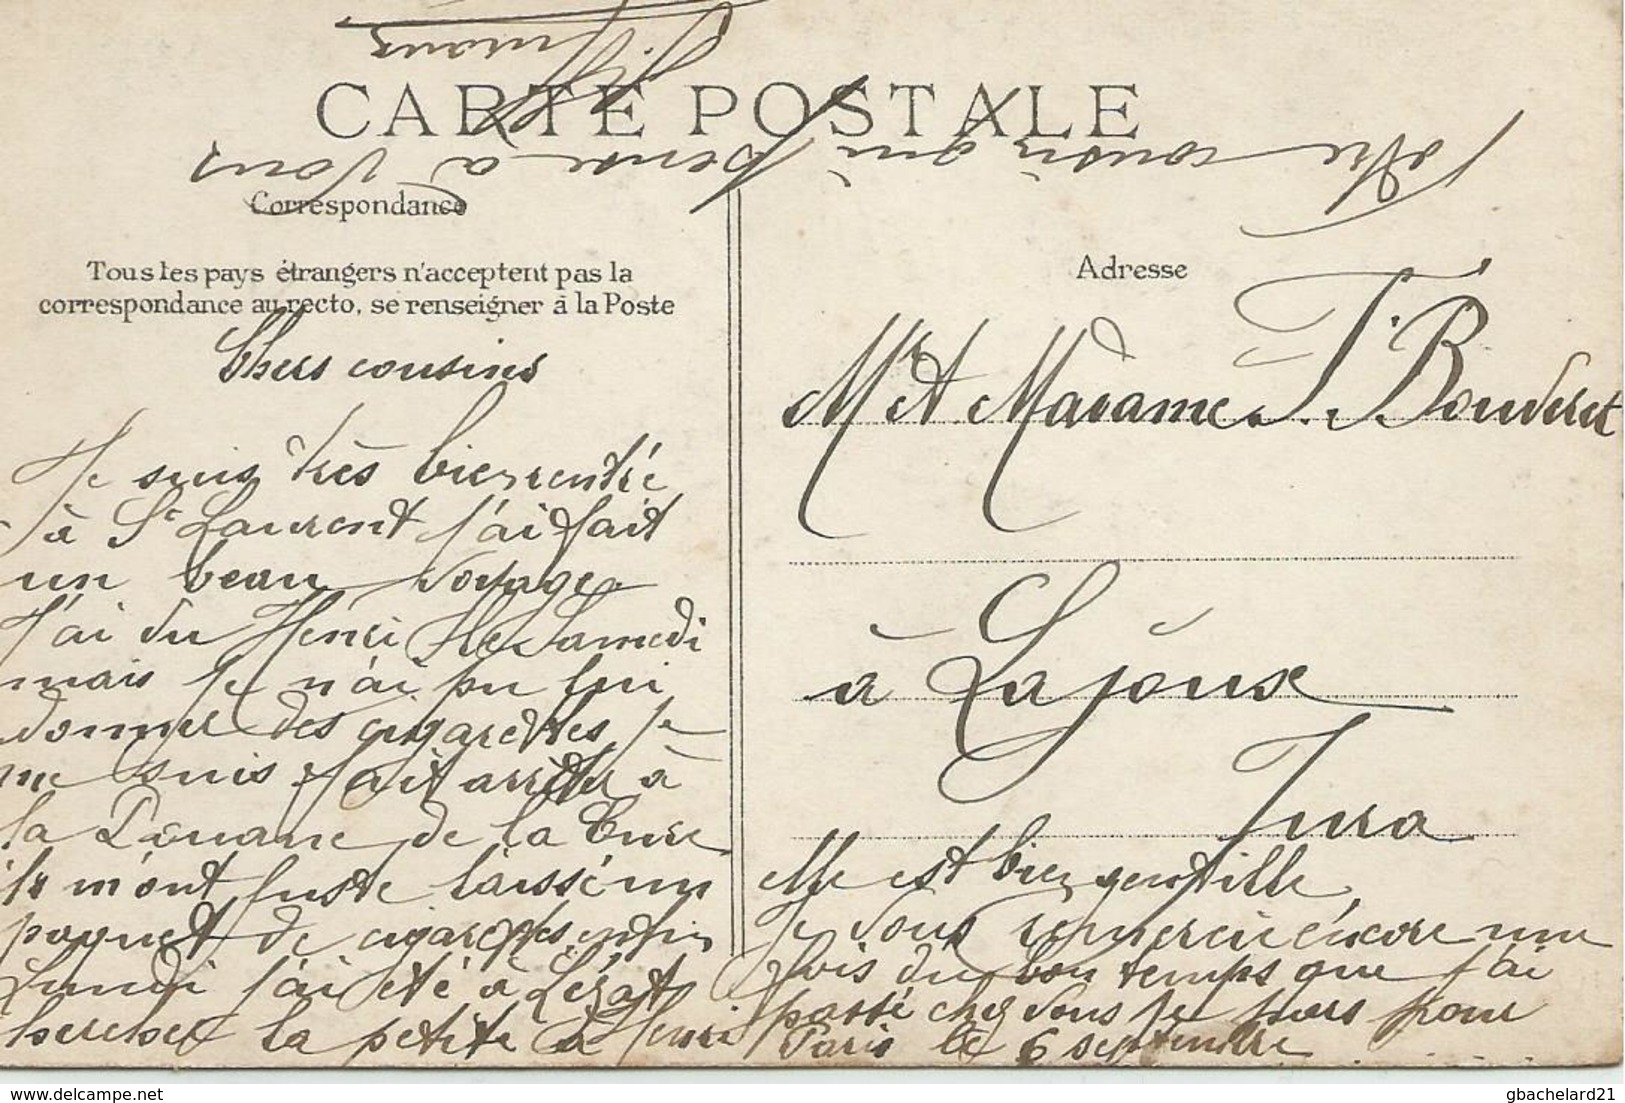 CARTE POSTALE
Correspondance
Tous les pays étrangers n'acceptent pas la
correspondance au recto, se renseigner à la Poste
Adresse
Chers cousins
Je suis très bien rentré
à St Laurent j'ai fait
un beau voyage
J'ai du Henri le Samedi
mais je n'ai pu lui
donner des cigarettes je
me suis fait arrêter à
la Douane de la Cure
ils m'ont juste laissé un
paquet de cigarettes enfin
Lundi j'ai été à Lézat
chercher la petite à Henri
Elle est bien gentille
Je vous remercie encore une
fois du bon temps que j'ai
passé chez vous je pars pour
Paris le 6 septembre
Votre cousin qui pense à vous
Mr et Madame J. Bouveret
à Lajoux
Jura
gbachelard21